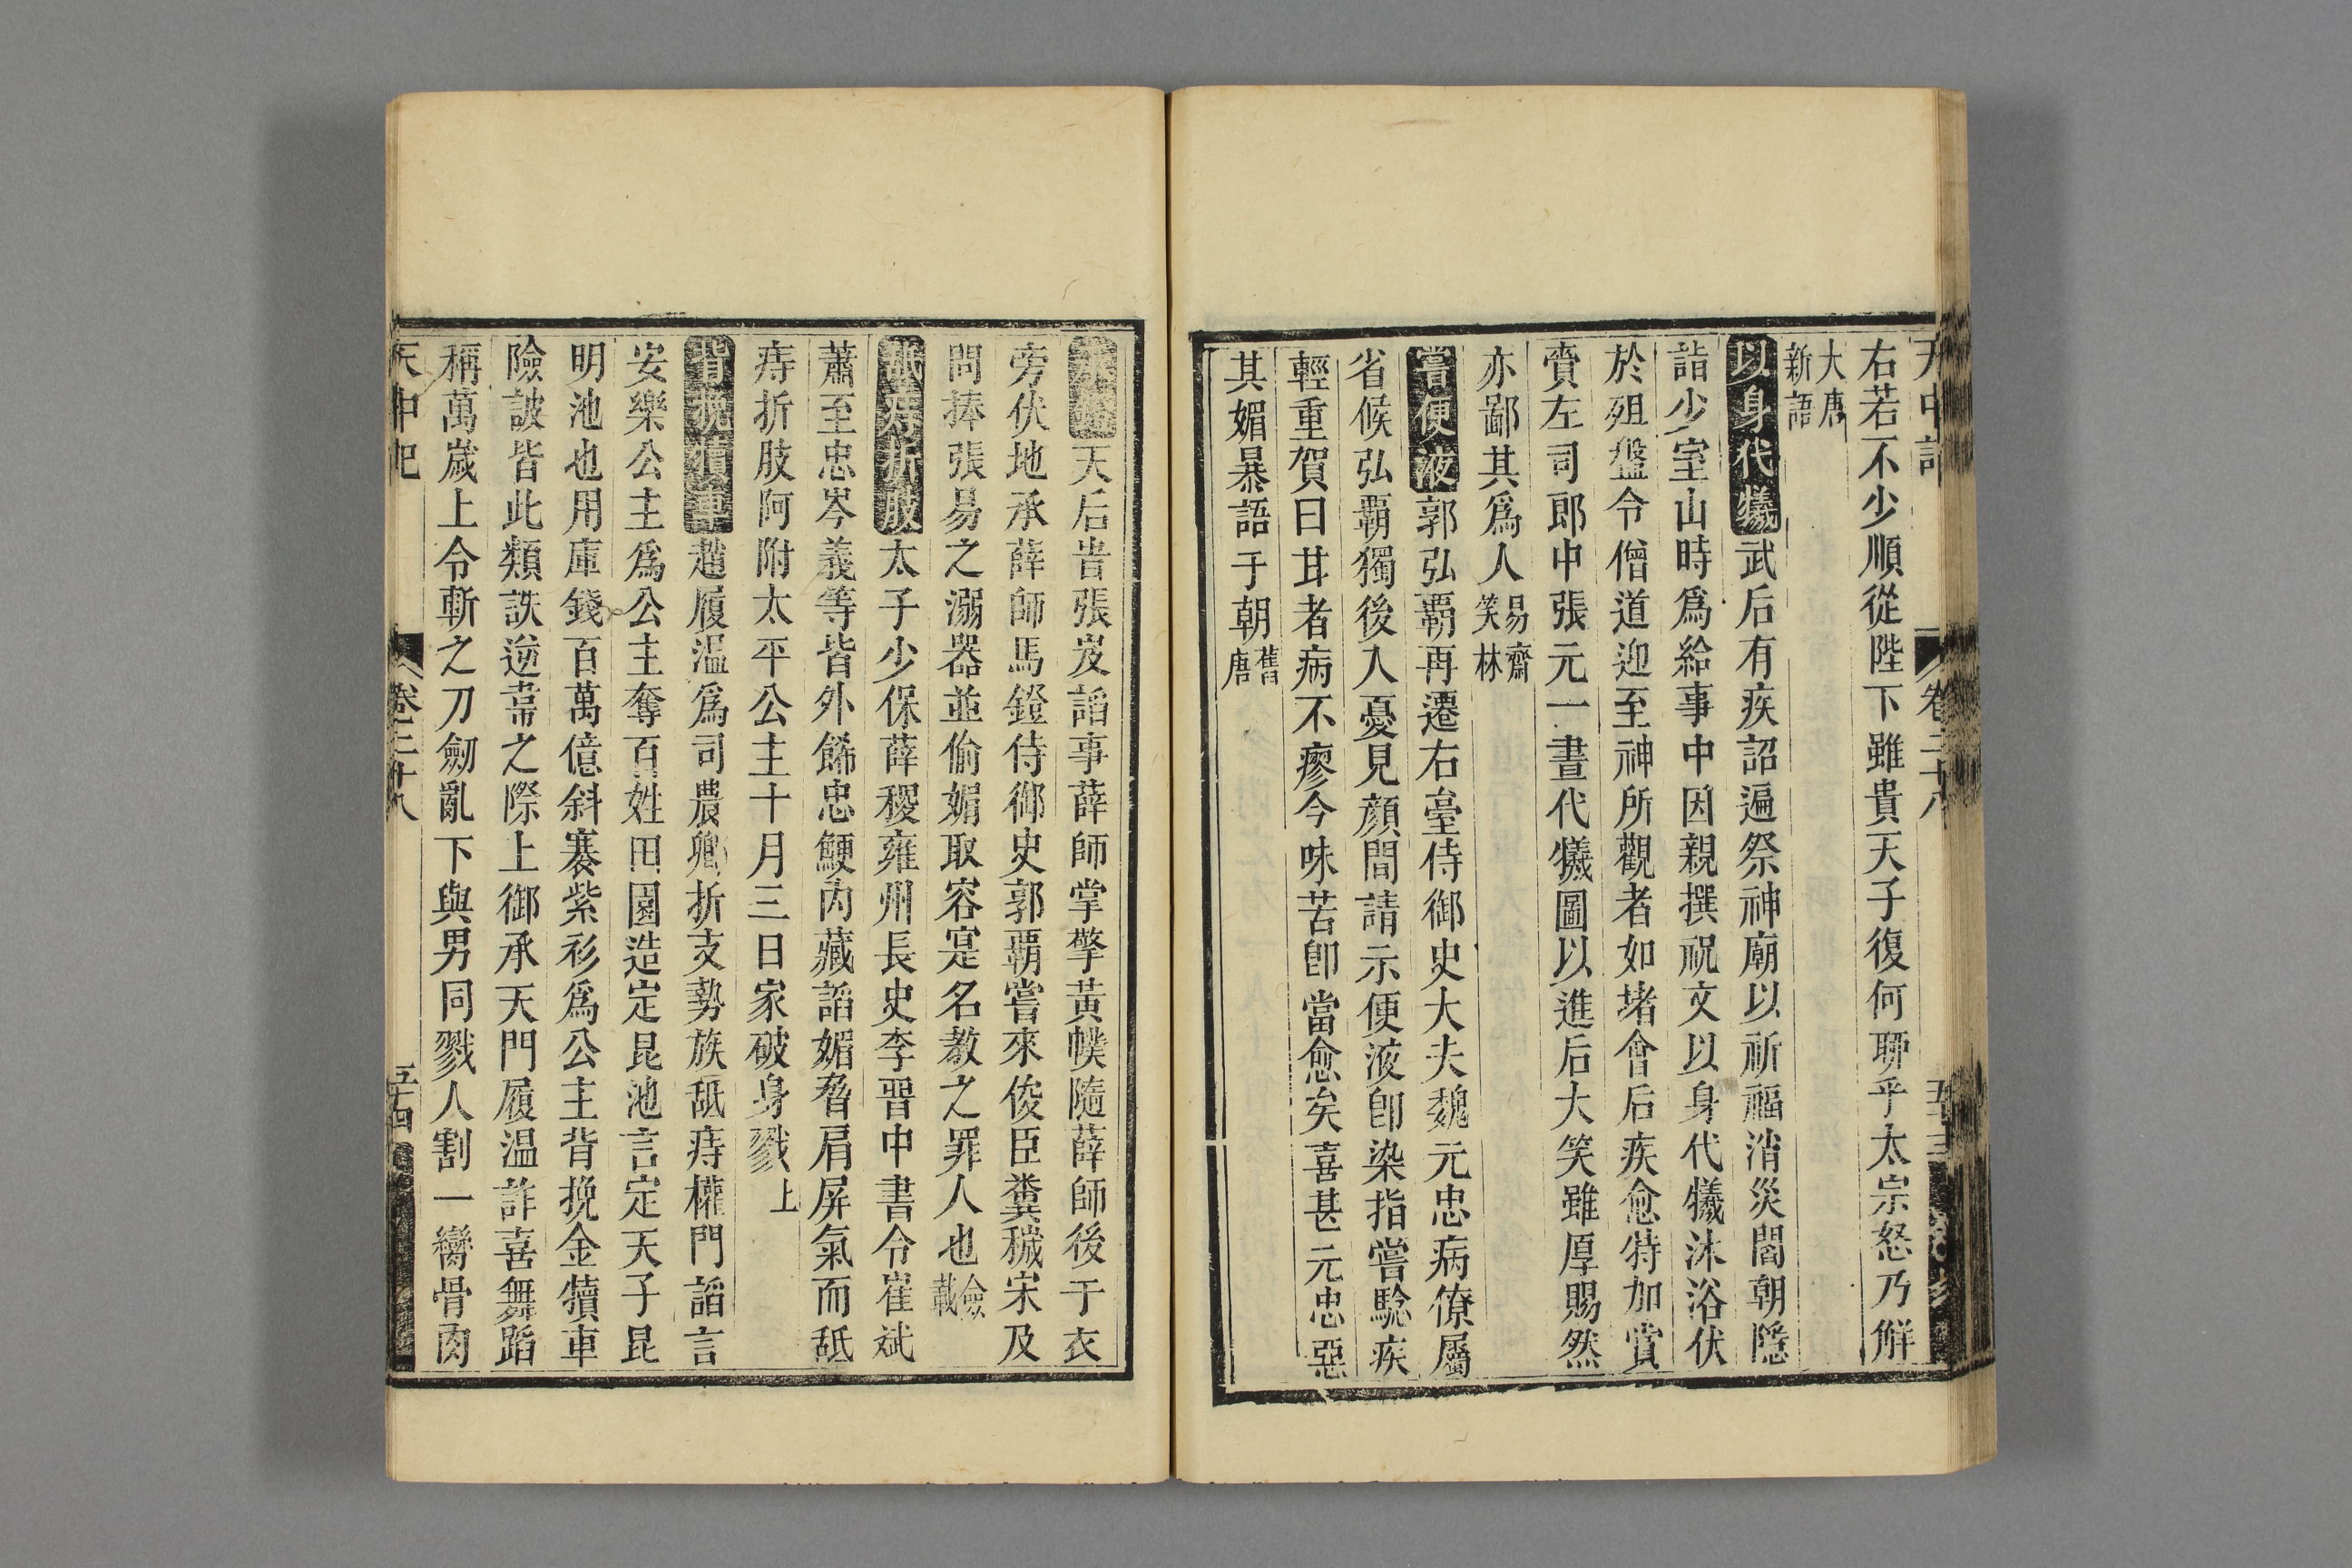 右若不少順從陛下雖貴天子復何聊乎太宗怒乃解
大唐
新語
以身代犧武后有疾詔遍祭神廟以祈福消災閻朝隱
詣少室山時爲給事中因親撰祝文以身代犧沐浴伏
於俎盤令僧道迎至神所觀者如堵會后疾愈特加賞
賚左司郎中張元一畫代犧圖以進后大笑雖厚賜然
亦鄙其爲人易齋笑林
嘗便液郭弘覇再遷右臺侍御史大夫魏元忠病僚屬
省候弘覇獨後入憂見顏間請示便液即染指嘗驗疾
輕重賀曰甘者病不瘳今味苦卽當愈矣喜甚元忠惡
其媚暴語于朝舊唐
天后時張岌諂事薛師掌擎黃幞隨薛師後于衣
旁伏地承薛師馬鐙侍御史郭覇嘗來俊臣糞穢宋及
問捧張易之溺器並偷媚取容寔名教之罪人也僉載
舐痔折肢太子少保薛稷雍州長史李晋中書令崔斌
蕭至忠岑義等皆外餙忠鯁内藏諂媚脅肩屏氣而舐
痔折肢阿附太平公主十月三日家破身戮上
背挽犢車趙履温爲司農卿折支勢族舐痔權門諂言
安樂公主爲公主奪百姓田園造定昆池言定天子昆
明池也用庫錢百萬億斜褰紫衫爲公主背挽金犢車
險詖皆此類誅逆韋之際上御承天門履温詐喜舞蹈
稱萬歲上令斬之刀劒亂下與男同戮人割一臠骨肉
天中記
卷二十八
五十四